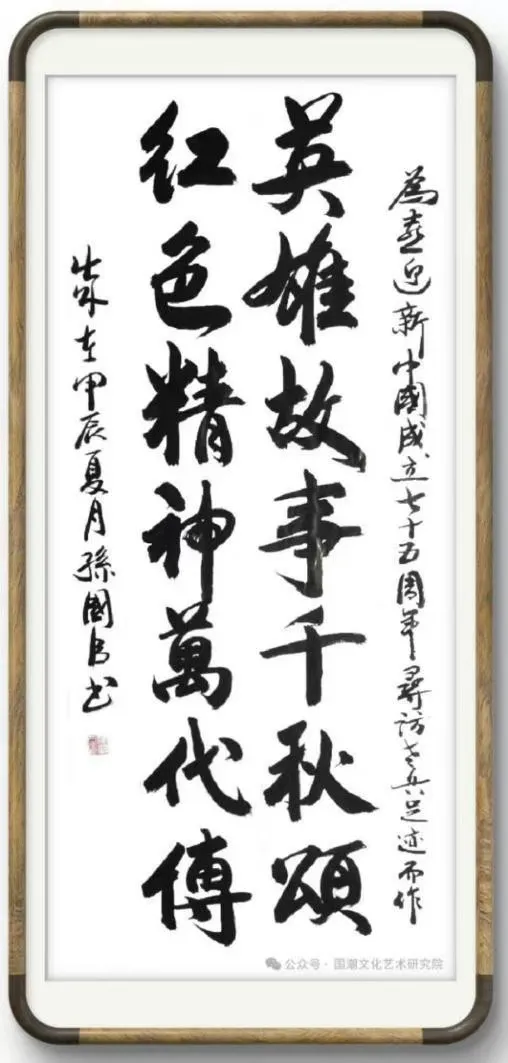 為喜迎新中國成立七十五周年尋访老兵足迹而作
英雄故事千秋頌
紅色精神萬代傳
歲在甲辰夏月孫國
书
公众号·国潮文化艺术研究院